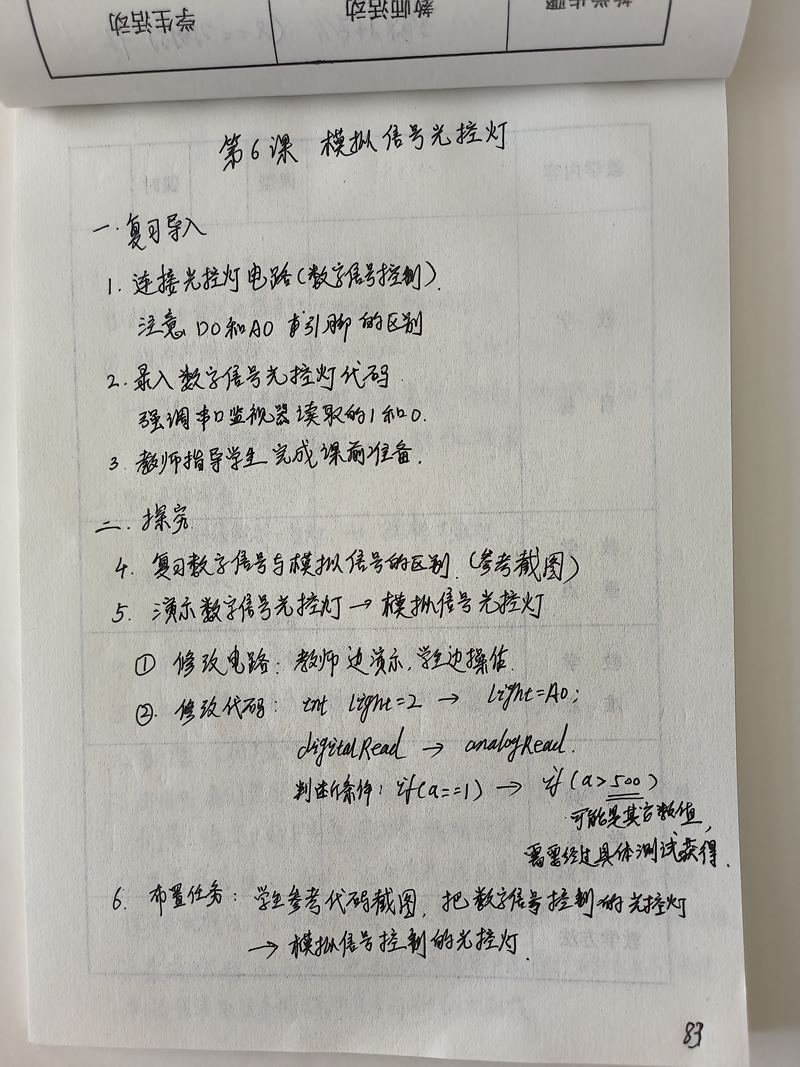 学生活动
教师活动
第6课 模拟信号光控灯
一.复习导入
1.连接光控灯电路(数字信号控制).
注意DO和AO引脚的区别
2.录入数字信号光控灯代码.
强调串口监视器读取的1和0.
3.教师指导学生完成课前准备.
二.探究
4.复习数字信号与模拟信号的区别.(参考截图)
5.演示数字信号光控灯→模拟信号光控灯
①修改电路:教师边演示,学生边操作.
②.修改代码:int light=2 → light=A0;
digitalRead → analogRead.
判断条件:if(a==1) → if(a>500)
可能是其它数值,
需要经过具体测试获得.
6.布置任务:学生参考代码截图,把数字信号控制的光控灯
→模拟信号控制的光控灯.
83